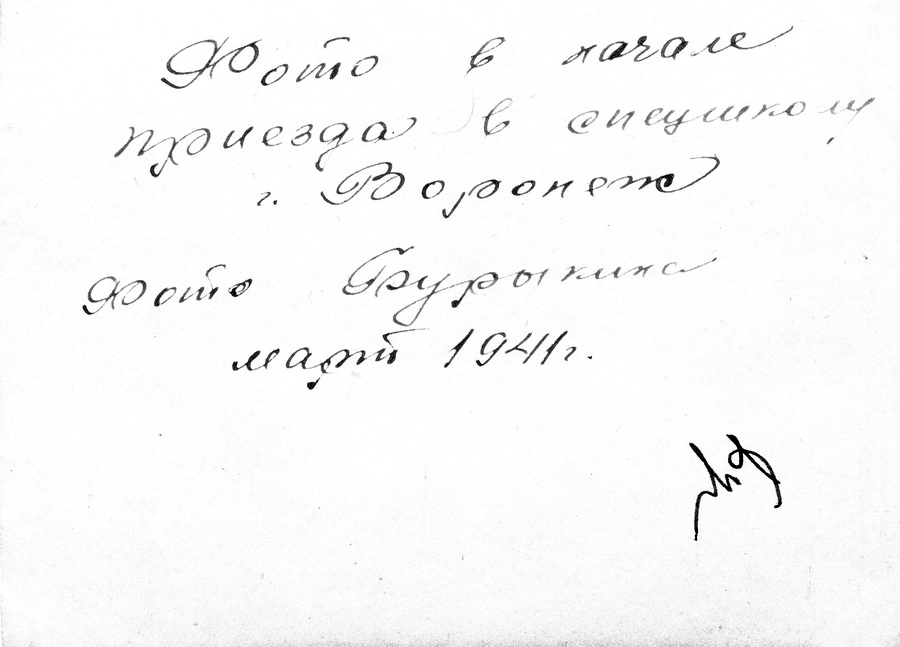 Фото в начале
приезда в спецшколу
г. Воронеж
Фото Бурыкина
март 1941г.